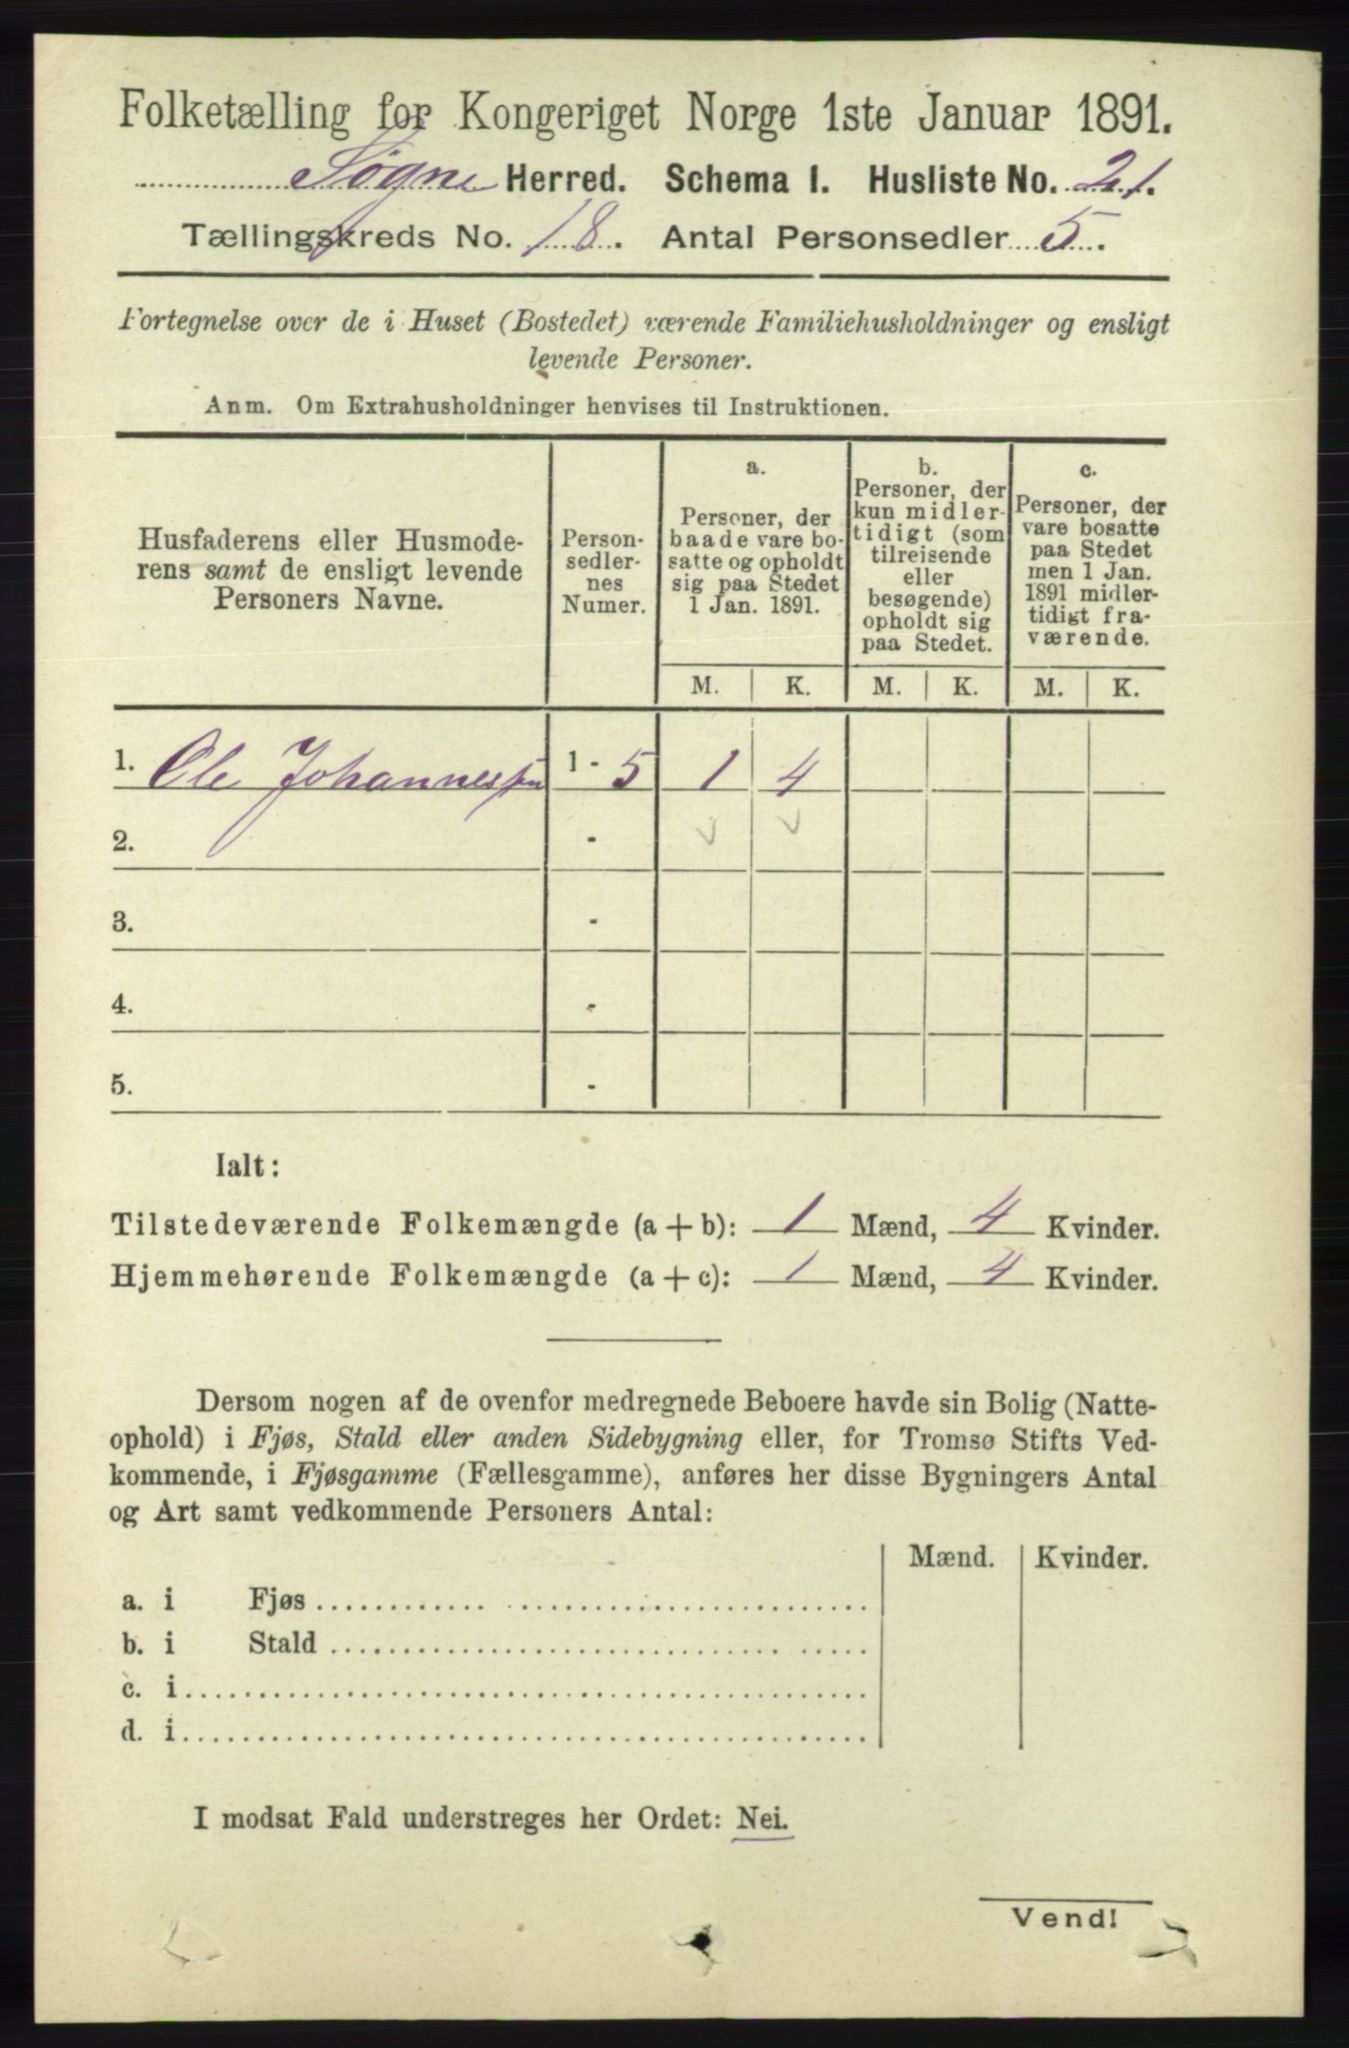 Folketælling for Kongeriget Norge 1ste Januar 1891.
Søgne Herred. Schema I. Husliste No. 21.
Tællingskreds No. 18. Antal Personsedler 5.
Fortegnelse over de i Huset (Bostedet) værende Familiehusholdninger og ensligt
levende Personer.
Anm. Om Extrahusholdninger henvises til Instruktionen.
Husfaderens eller Husmode-
rens samt de ensligt levende
Personers Navne.
Person-
sedler-
nes
Numer.
a.
Personer, der
baade vare bo-
satte og opholdt
sig paa Stedet
1 Jan. 1891.
b.
Personer, der
kun midler-
tidigt (som
tilreisende
eller
besøgende)
opholdt sig
paa Stedet.
c.
Personer, der
vare bosatte
paa Stedet
men 1 Jan.
1891 midler-
tidigt fra-
værende.
M. K. M. K. M. K.
1. Ole Johannessen 1 - 5 1 4
2. -
3. -
4. -
5. -
Ialt:
Tilstedeværende Folkemængde (a + b): 1 Mænd, 4 Kvinder.
Hjemmehørende Folkemængde (a + c): 1 Mænd, 4 Kvinder.
Dersom nogen af de ovenfor medregnede Beboere havde sin Bolig (Natte-
ophold) i Fjøs, Stald eller anden Sidebygning eller, for Tromsø Stifts Ved-
kommende, i Fjøsgamme (Fællesgamme), anføres her disse Bygningers Antal
og Art samt vedkommende Personers Antal:
Mænd. Kvinder.
a. i Fjøs
b. i Stald
c. i
d. i
I modsat Fald understreges her Ordet: Nei.
Vend!